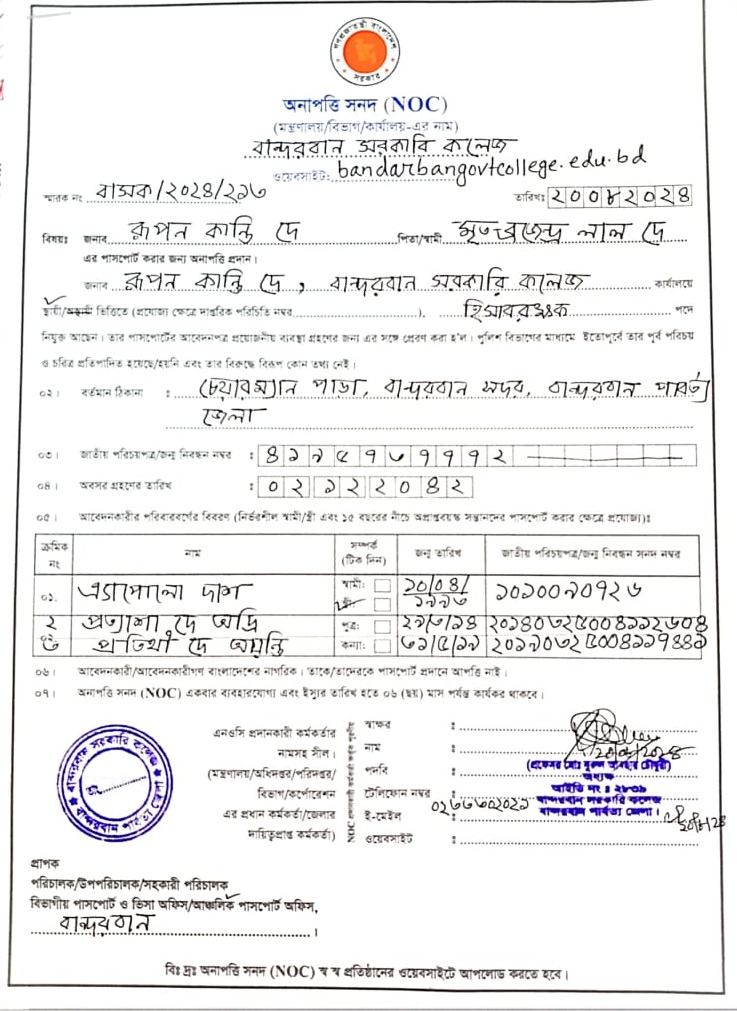 গণপ্রজাতন্ত্রী বাংলাদেশ
সরকার
অনাপত্তি সনদ (NOC)
(মন্ত্রণালয়/বিভাগ/কার্যালয়-এর নাম)
বান্দরবান সরকারি কলেজ
ওয়েবসাইট: bandarbangovtcollege.edu.bd
স্মারক নং বাসক/২০২৪/২১৩ তারিখঃ ২০০৮২০২৪
বিষয়ঃ জনাব রূপন কান্তি দে পিতা/স্বামী মৃত ব্রজেন্দ্র লাল দে
এর পাসপোর্ট করার জন্য অনাপত্তি প্রদান।
জনাব রূপন কান্তি দে, বান্দরবান সরকারি কলেজ কার্যালয়ে
স্থায়ী/অস্থায়ী ভিত্তিতে (প্রযোজ্য ক্ষেত্রে দাপ্তরিক পরিচিতি নম্বর ), হিসাবরক্ষক পদে
নিযুক্ত আছেন। তার পাসপোর্টের আবেদনপত্র প্রয়োজনীয় ব্যবস্থা গ্রহণের জন্য এর সঙ্গে প্রেরণ করা হ'ল। পুলিশ বিভাগের মাধ্যমে ইতোপূর্বে তার পূর্ব পরিচয়
ও চরিত্র প্রতিপাদিত হয়েছে/হয়নি এবং তার বিরুদ্ধে বিরূপ কোন তথ্য নেই।
০২। বর্তমান ঠিকানা : চেয়ারম্যান পাড়া, বান্দরবান সদর, বান্দরবান পার্বত্য
জেলা
০৩। জাতীয় পরিচয়পত্র/জন্ম নিবন্ধন নম্বর : ৪১৯৫৭৬৭৭৭২
০৪। অবসর গ্রহণের তারিখ : ০২১২২০৪২
০৫। আবেদনকারীর পরিবারবর্গের বিবরণ (নির্ভরশীল স্বামী/স্ত্রী এবং ১৫ বছরের নীচে অপ্রাপ্তবয়স্ক সন্তানদের পাসপোর্ট করার ক্ষেত্রে প্রযোজ্য)ঃ
ক্রমিক নং নাম সম্পর্ক (টিক দিন) জন্ম তারিখ জাতীয় পরিচয়পত্র/জন্ম নিবন্ধন সনদ নম্বর
০১. এ্যাপোলো দাশ স্বামী: স্ত্রী: ১০/০৪/১৯৯৩ ১০১০০৯০৭২৬
২ প্রত্যাশা দে অদ্রি পুত্র:
৩ প্রতিথী দে অয়ন্তি কন্যা:
০৬। আবেদনকারী/আবেদনকারীগণ বাংলাদেশের নাগরিক। তাকে/তাদেরকে পাসপোর্ট প্রদানে আপত্তি নাই।
০৭। অনাপত্তি সনদ (NOC) একবার ব্যবহারযোগ্য এবং ইস্যুর তারিখ হতে ০৬ (ছয়) মাস পর্যন্ত কার্যকর থাকবে।
বান্দরবান সরকারি কলেজ
তাং
বান্দরবান পার্বত্য জেলা
এনওসি প্রদানকারী কর্মকর্তার
নামসহ সীল।
(মন্ত্রণালয়/অধিদপ্তর/পরিদপ্তর/
বিভাগ/কর্পোরেশন
এর প্রধান কর্মকর্তা/জেলার
দায়িত্বপ্রাপ্ত কর্মকর্তা)
স্বাক্ষর :
নাম :
পদবি :
টেলিফোন নম্বর :
ই-মেইল :
ওয়েবসাইট :
অধ্যক্ষ
আইডি নং : ২৮৩৯
বান্দরবান সরকারি কলেজ
বান্দরবান পার্বত্য জেলা।
প্রাপক
পরিচালক/উপপরিচালক/সহকারী পরিচালক
বিভাগীয় পাসপোর্ট ও ভিসা অফিস/আঞ্চলিক পাসপোর্ট অফিস,
বান্দরবান।
বিঃ দ্রঃ অনাপত্তি সনদ (NOC) স্ব স্ব প্রতিষ্ঠানের ওয়েবসাইটে আপলোড করতে হবে।